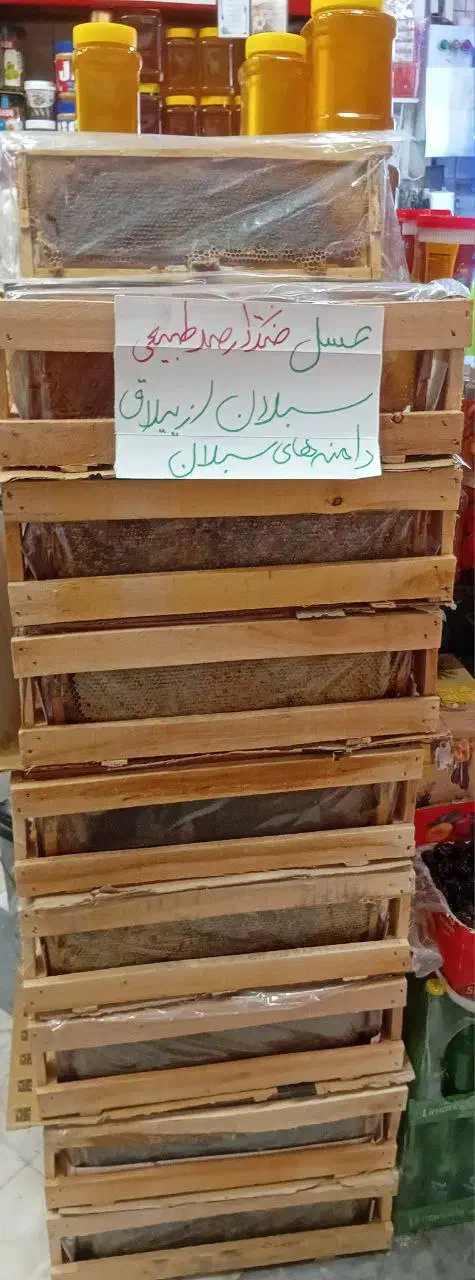 عسل صددرصد طبیعی
سبلان از ییلاق
دامنه‌های سبلان